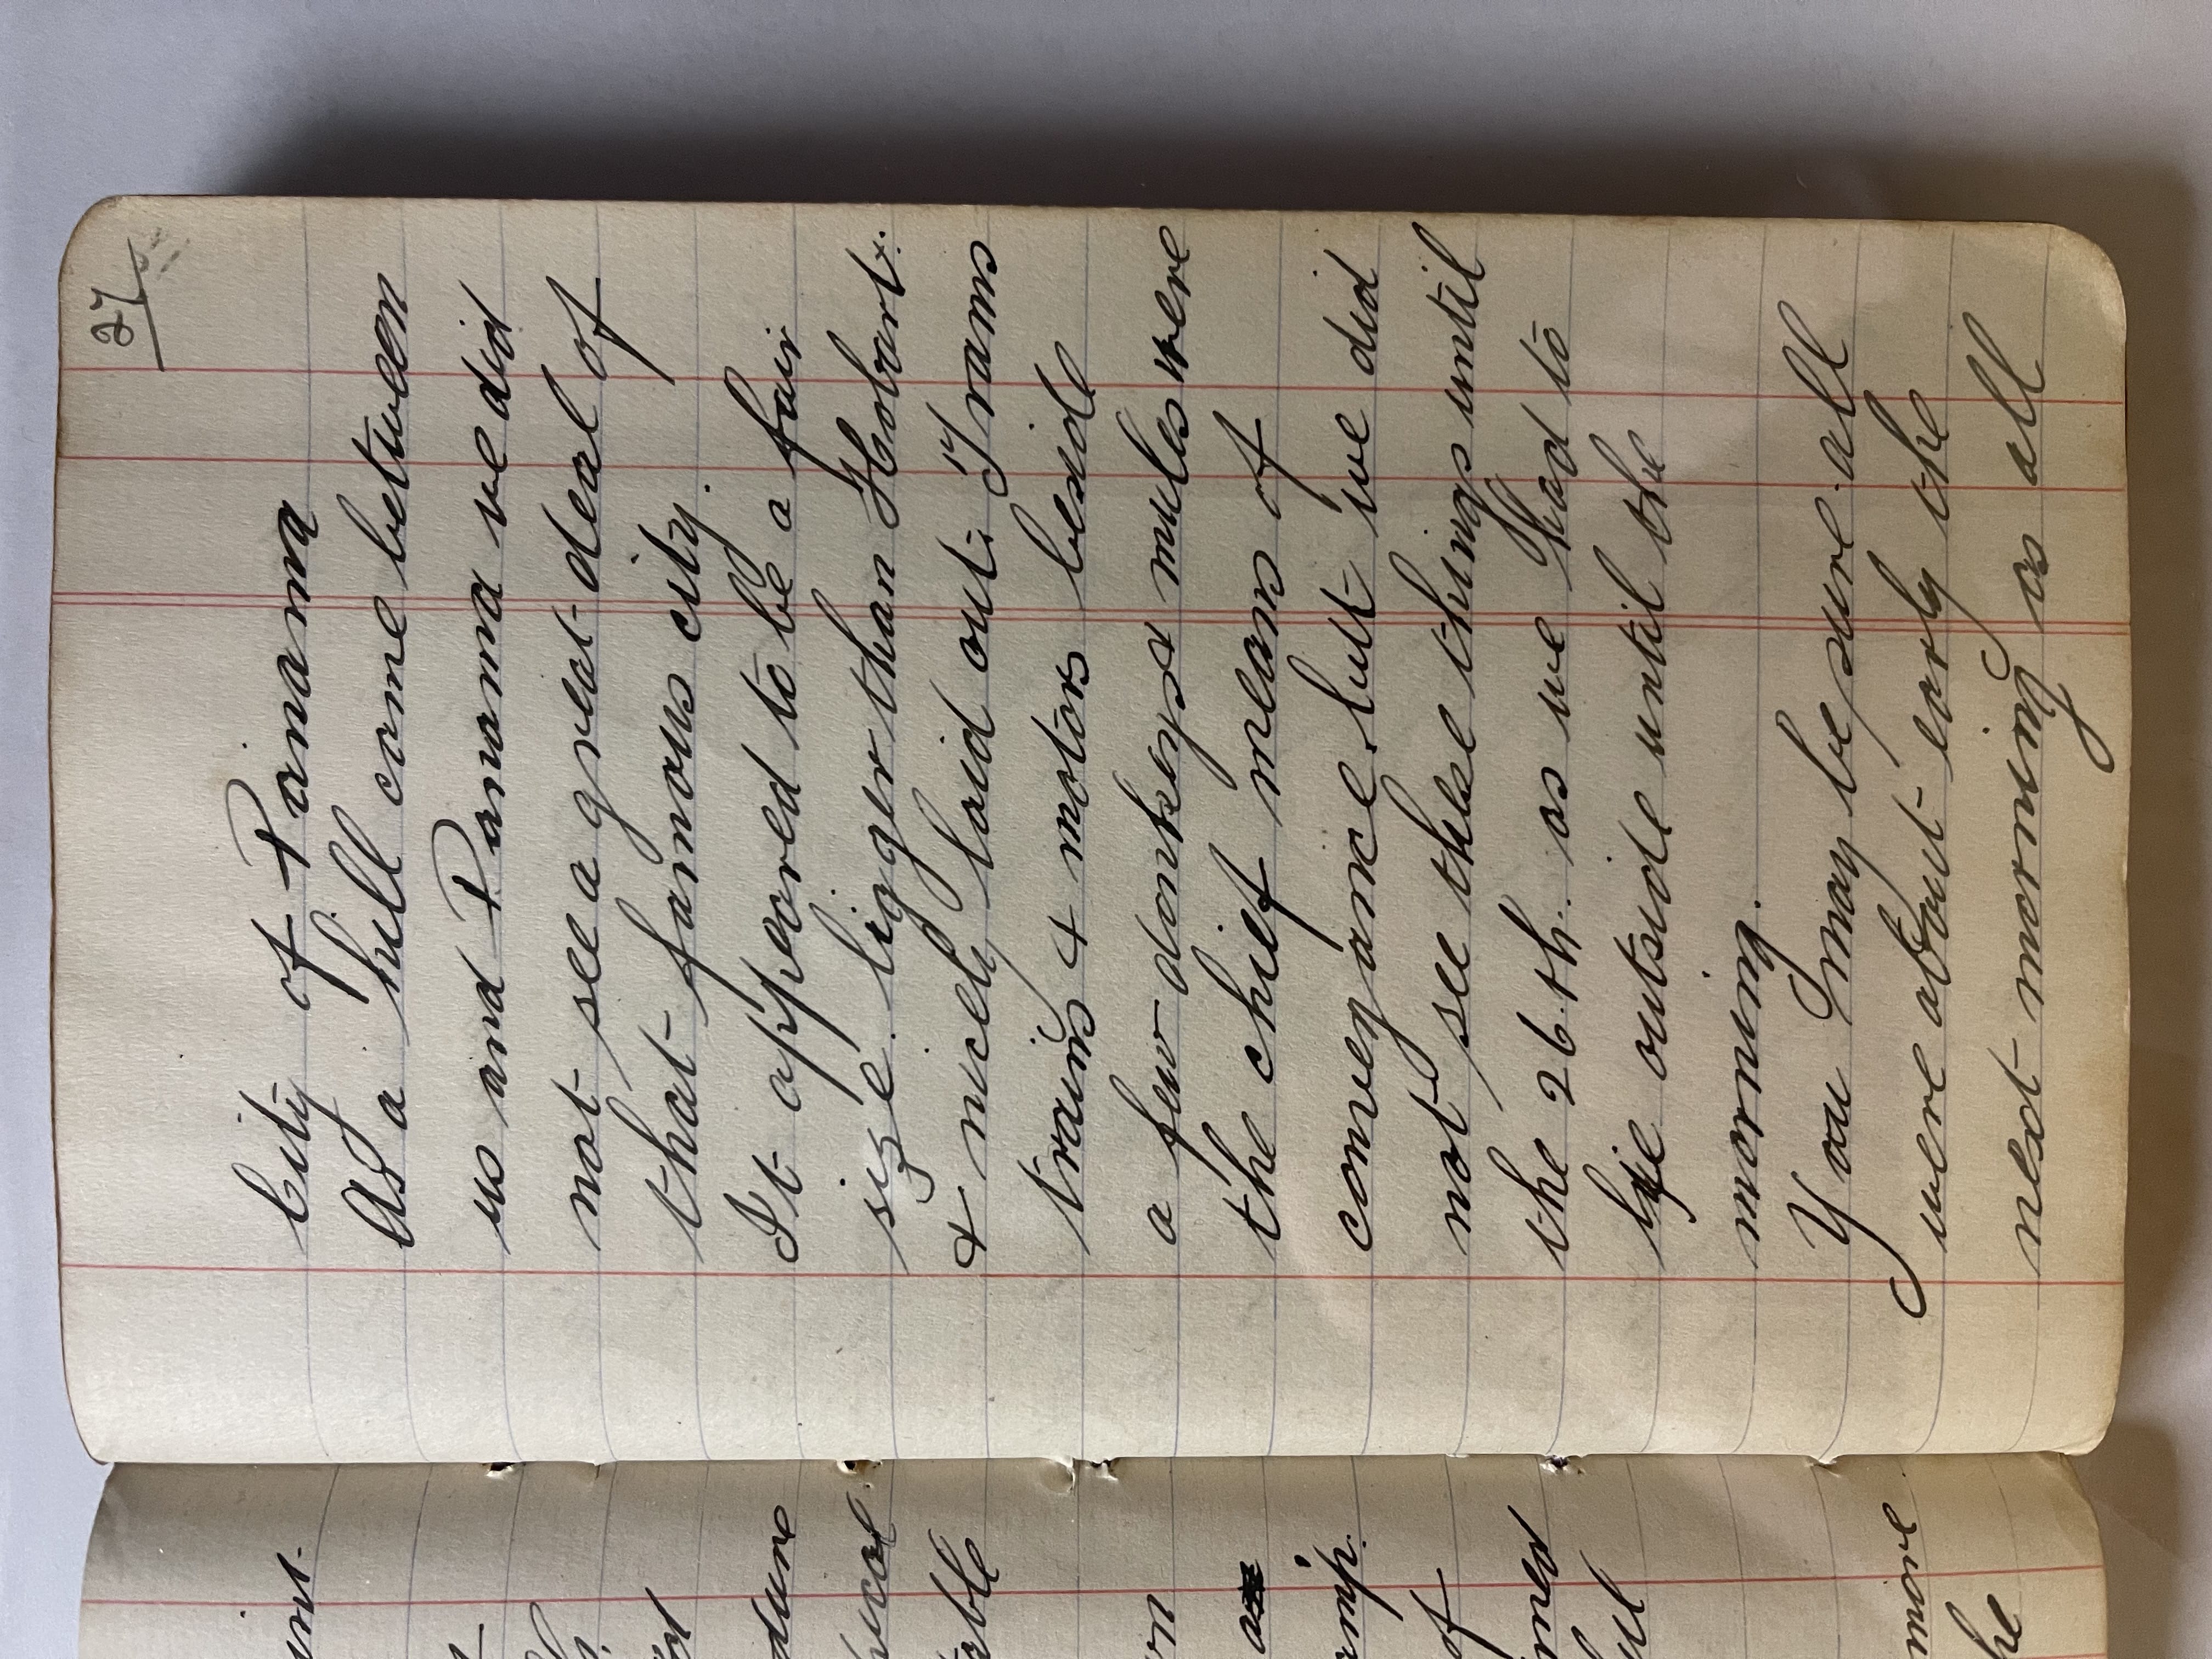 27
City of Panama
As a hill came between
us and Panama we did
not see a great deal of
that famous city.
It appeared to be a fair
size. bigger than Hobart.
& nicely laid out. Trams
trains & motors beside
a few donkeys & mules were
the chief means of
conveyance but we did
not see these things until
the 26th. as we had to
lie outside until the
morning.
You may be sure all
were about early the
next morning as all
dure
rble
on
of
more
he